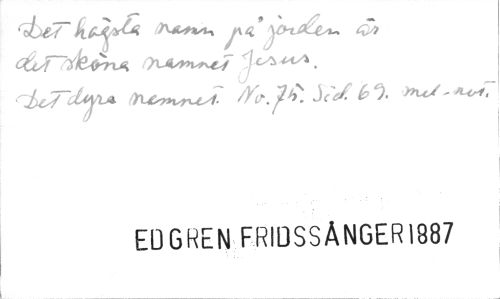 Det högsta namn på jorden är
det sköna namnet Jesus.
Det dyra namnet. No. 75. Sid. 69. mel-not.
EDGREN, FRIDSSÅNGER 1887